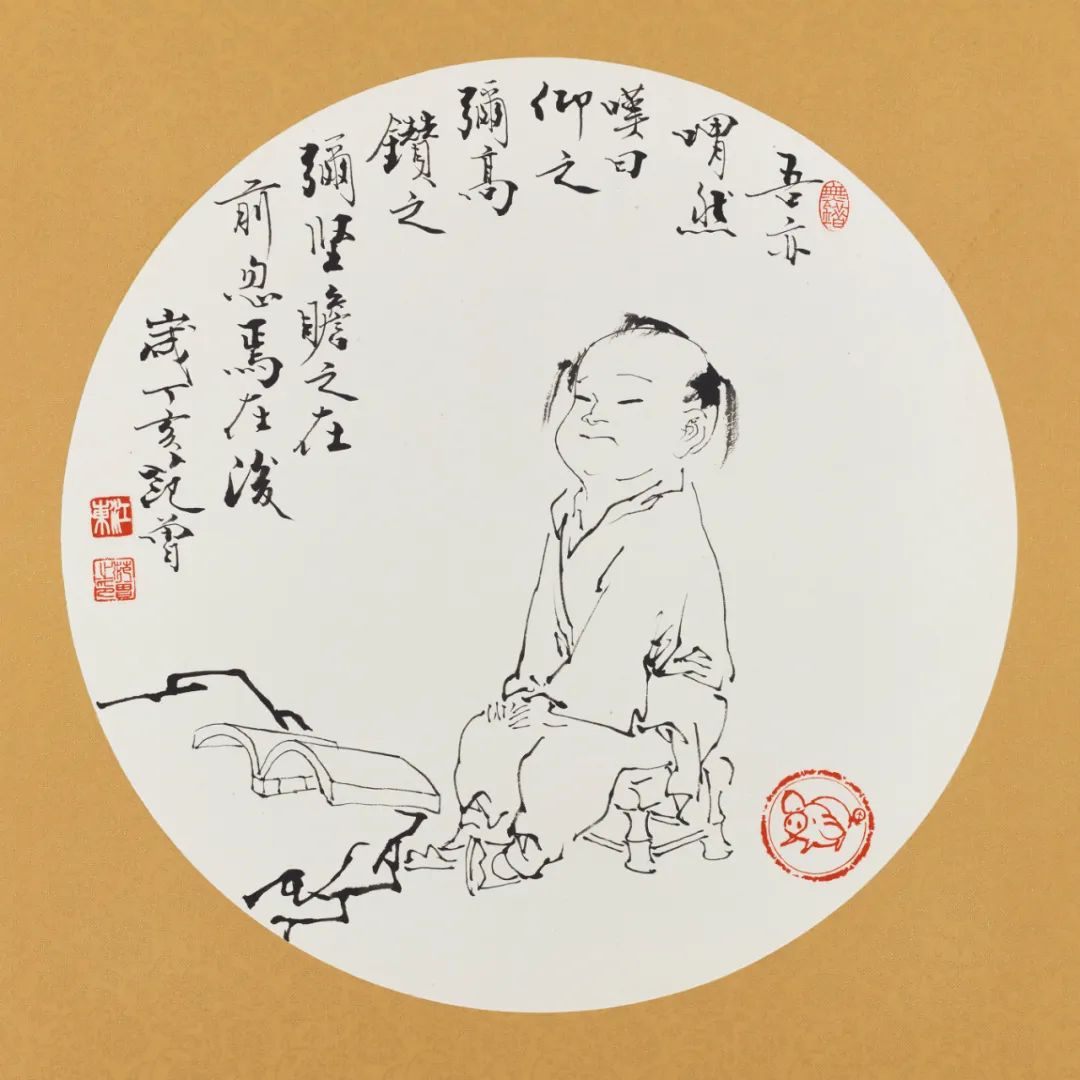 吾亦
喟然
嘆曰
仰之
彌高
鑽之
彌堅瞻之在
前忽焉在後
歲丁亥范曾
江東
范曾之印